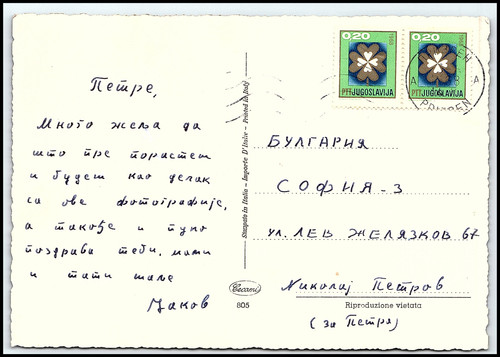 Петре,
Много жеља да
што пре порастеш
и будеш као дечак
са ове фотографије,
а такође и пуно
поздрава теби, мами
и тати шаље
Јаков
Stampato in Italia - Importe D'Italie - Printed in Italy
Cecami
805
0.20
PTT JUGOSLAVIJA
0.20
PTT JUGOSLAVIJA
БУЛГАРИЯ
СОФИЯ-3
ул. ЛЕВ ЖЕЛЯЗКОВ 67
Николај Петров
Riproduzione vietata
(за Петра)